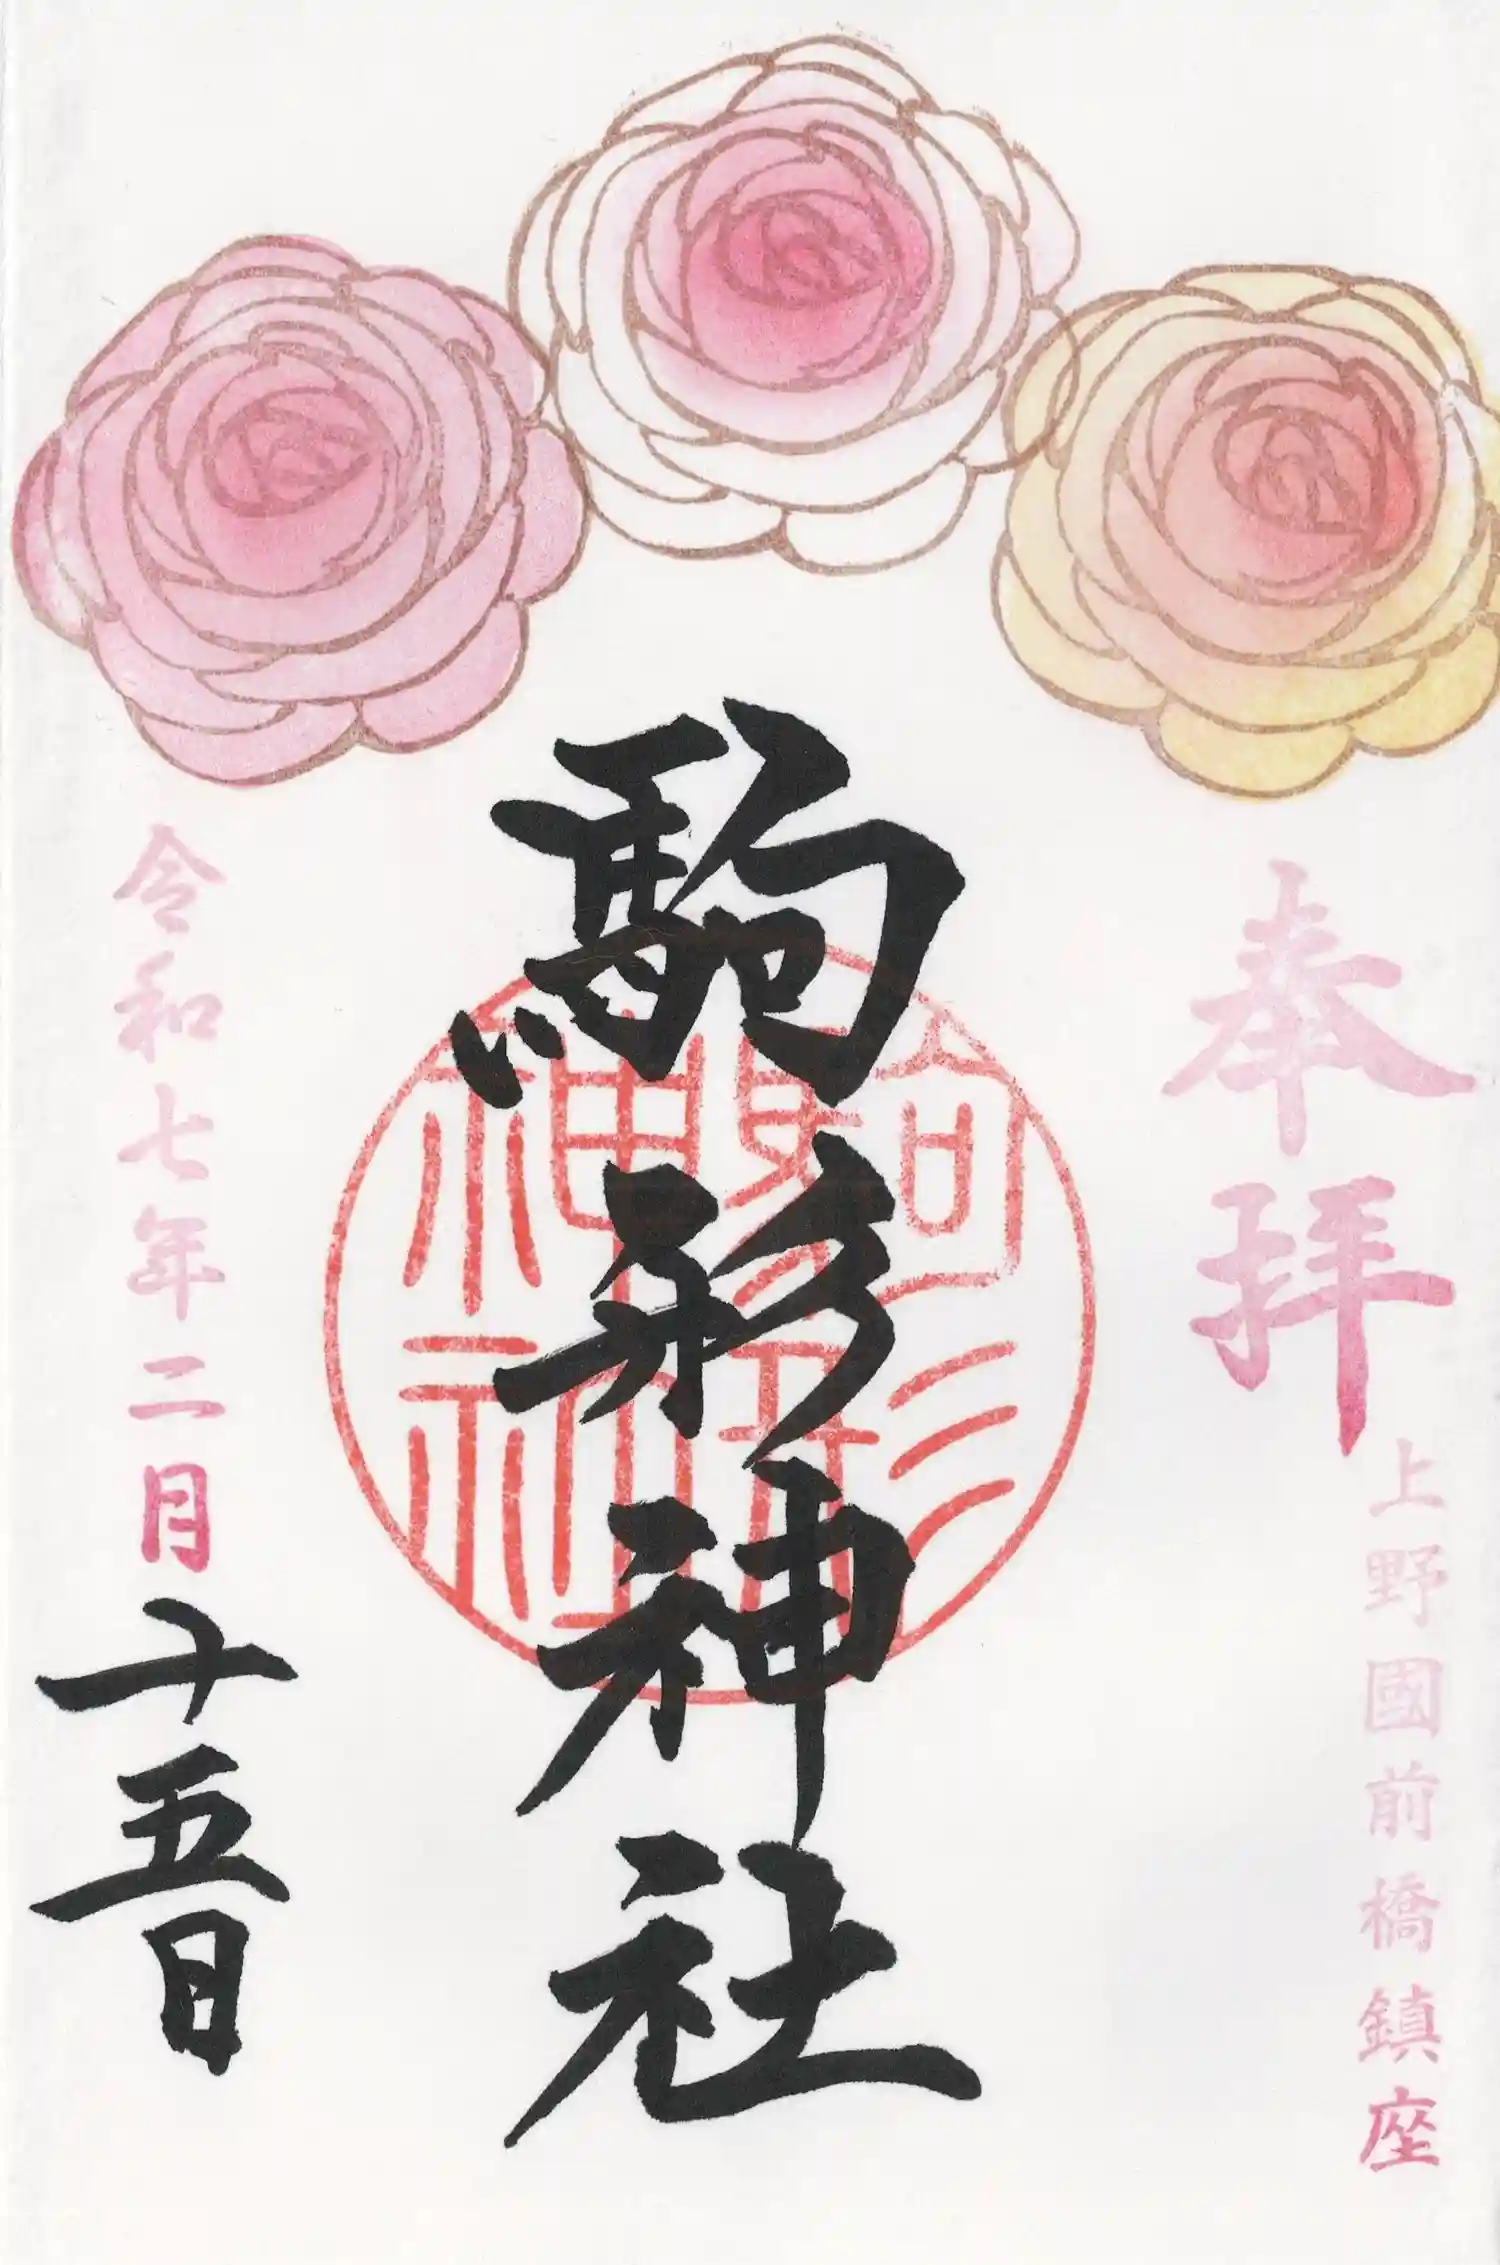 奉拝
上野國前橋鎮座
駒形神社
駒形
神社
令和七年二月十五日